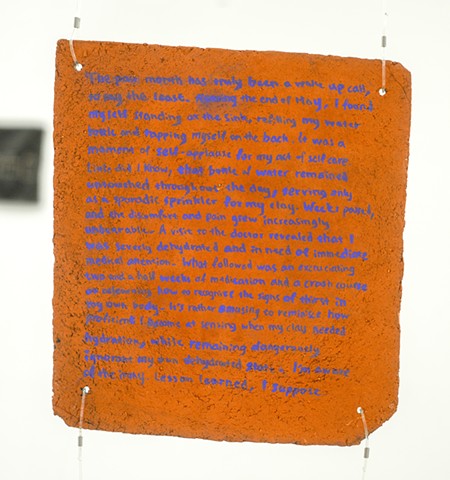 The past month has truly been a wake up call,
to say the least. the end of May, I found
myself standing at the sink, refilling my water
bottle and tapping myself on the back. It was a
moment of self-applause for my act of self care.
Little did I know, that bottle of water remained
untouched throughout the day, serving only
as a sporadic sprinkler for my clay. Weeks passed,
and the discomfort and pain grew increasingly
unbearable. A visit to the doctor revealed that I
was severely dehydrated and in need of immediate
medical attention. What followed was an excruciating
two and a half weeks of medication and a crash course
on relearning how to recognise the signs of thirst in
my own body. It's rather amusing to reminisce how
proficient I became at sensing when my clays needed
hydration, while remaining dangerously
ignorant my own dehydrated state. I'm aware
of the irony. Lesson learned, I suppose.